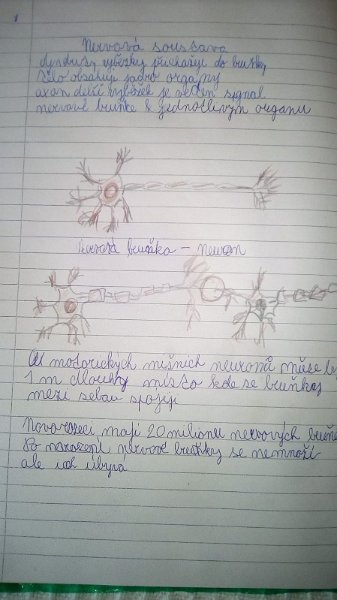 1
Nervová soustava
výběžky přicházejí do buňky
tělo obsahuje jádro orgány
axon delší výběžek je veden signal
nervové buňke k jednotlivým orgánu
buňka - neuron
U motorických míšních neuronů může
1 m dlouhý místo kde se buňky
mezi sebou spojují
Novorozenci mají 20 milionu nervových
Po narození nervové buňky se nemnoží
ale ich ubývá